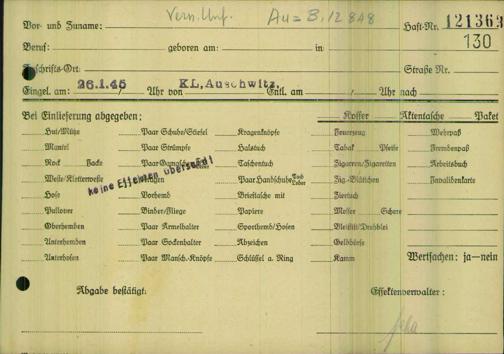 Vern. Unf. Au = B. 12 848
Vor- und Zuname: Haft-Nr. 121363
130
Beruf: geboren am: in
Anschrifts-Ort: Straße Nr.
Eingel. am: 26.1.45 Uhr von KL. Auschwitz. Entl. am Uhr nach
Bei Einlieferung abgegeben: Koffer Aktentasche Paket
Hut/Mütze Paar Schuhe/Stiefel Kragenknöpfe Feuerzeug Wehrpaß
Mantel Paar Strümpfe Halstuch Tabak Pfeife Fremdenpaß
Rock Jacke Paar Gamaschen Taschentuch Zigarren/Zigaretten Arbeitsbuch
Weste/Kletterweste Kragen Paar Handschuhe Tuch Leder Zig.-Blättchen Invalidenkarte
keine Effekten übersandt!
Hose Vorhemd Brieftasche mit Ziertuch
Pullover Binder/Fliege Papiere Messer Schere
Oberhemden Paar Ärmelhalter Sporthemd/Hosen Bleistift/Drehblei
Unterhemden Paar Sockenhalter Abzeichen Geldbörse
Unterhosen Paar Mansch.-Knöpfe Schlüssel a. Ring Kamm Wertsachen: ja—nein
Abgabe bestätigt: Effektenverwalter: